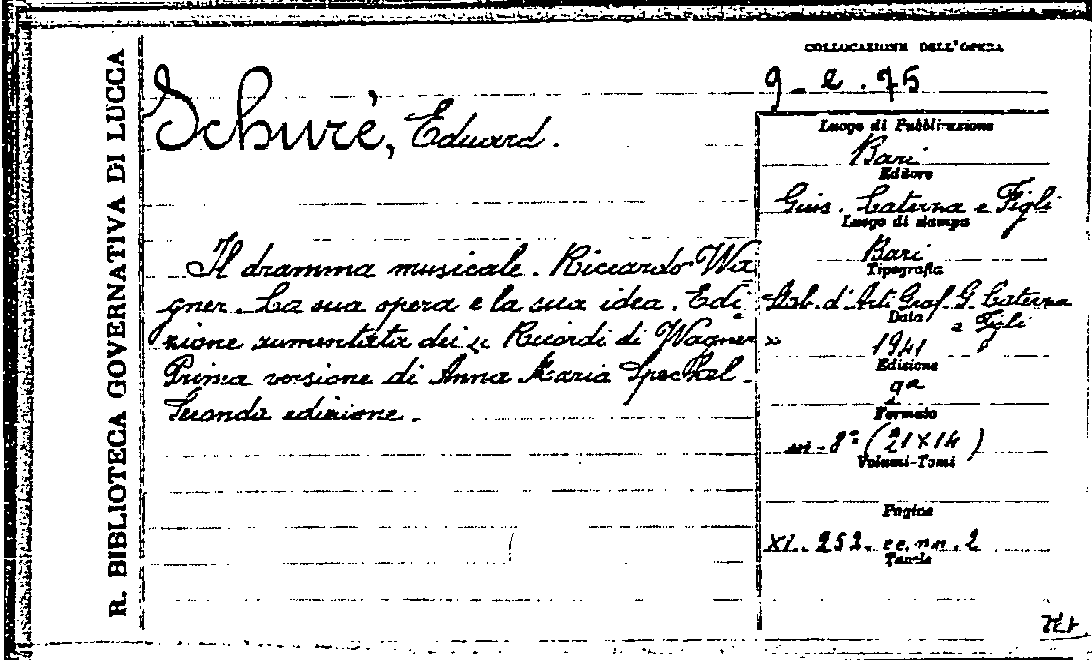 R. BIBLIOTECA GOVERNATIVA DI LUCCA
COLLOCAZIONE DELL'OPERA
9 - e . 75
Schurè, Eduard.
Il dramma musicale. Riccardo Wa
gner. La sua opera e la sua idea. Edi
zione aumentata dei « Ricordi di Wagner »
Prima versione di Anna Maria Speckel.
Seconda edizione.
Luogo di Pubblicazione
Bari
Editore
Gius. Laterza e Figli
Luogo di stampa
Bari
Tipografia
Stab. d'Arti Graf. G. Laterza
e Figli
Data
1941
Edizione
Formato
in-8° (21X14)
Volumi-Tomi
Pagine
XI. 252. cc. nn. 2
Tavole